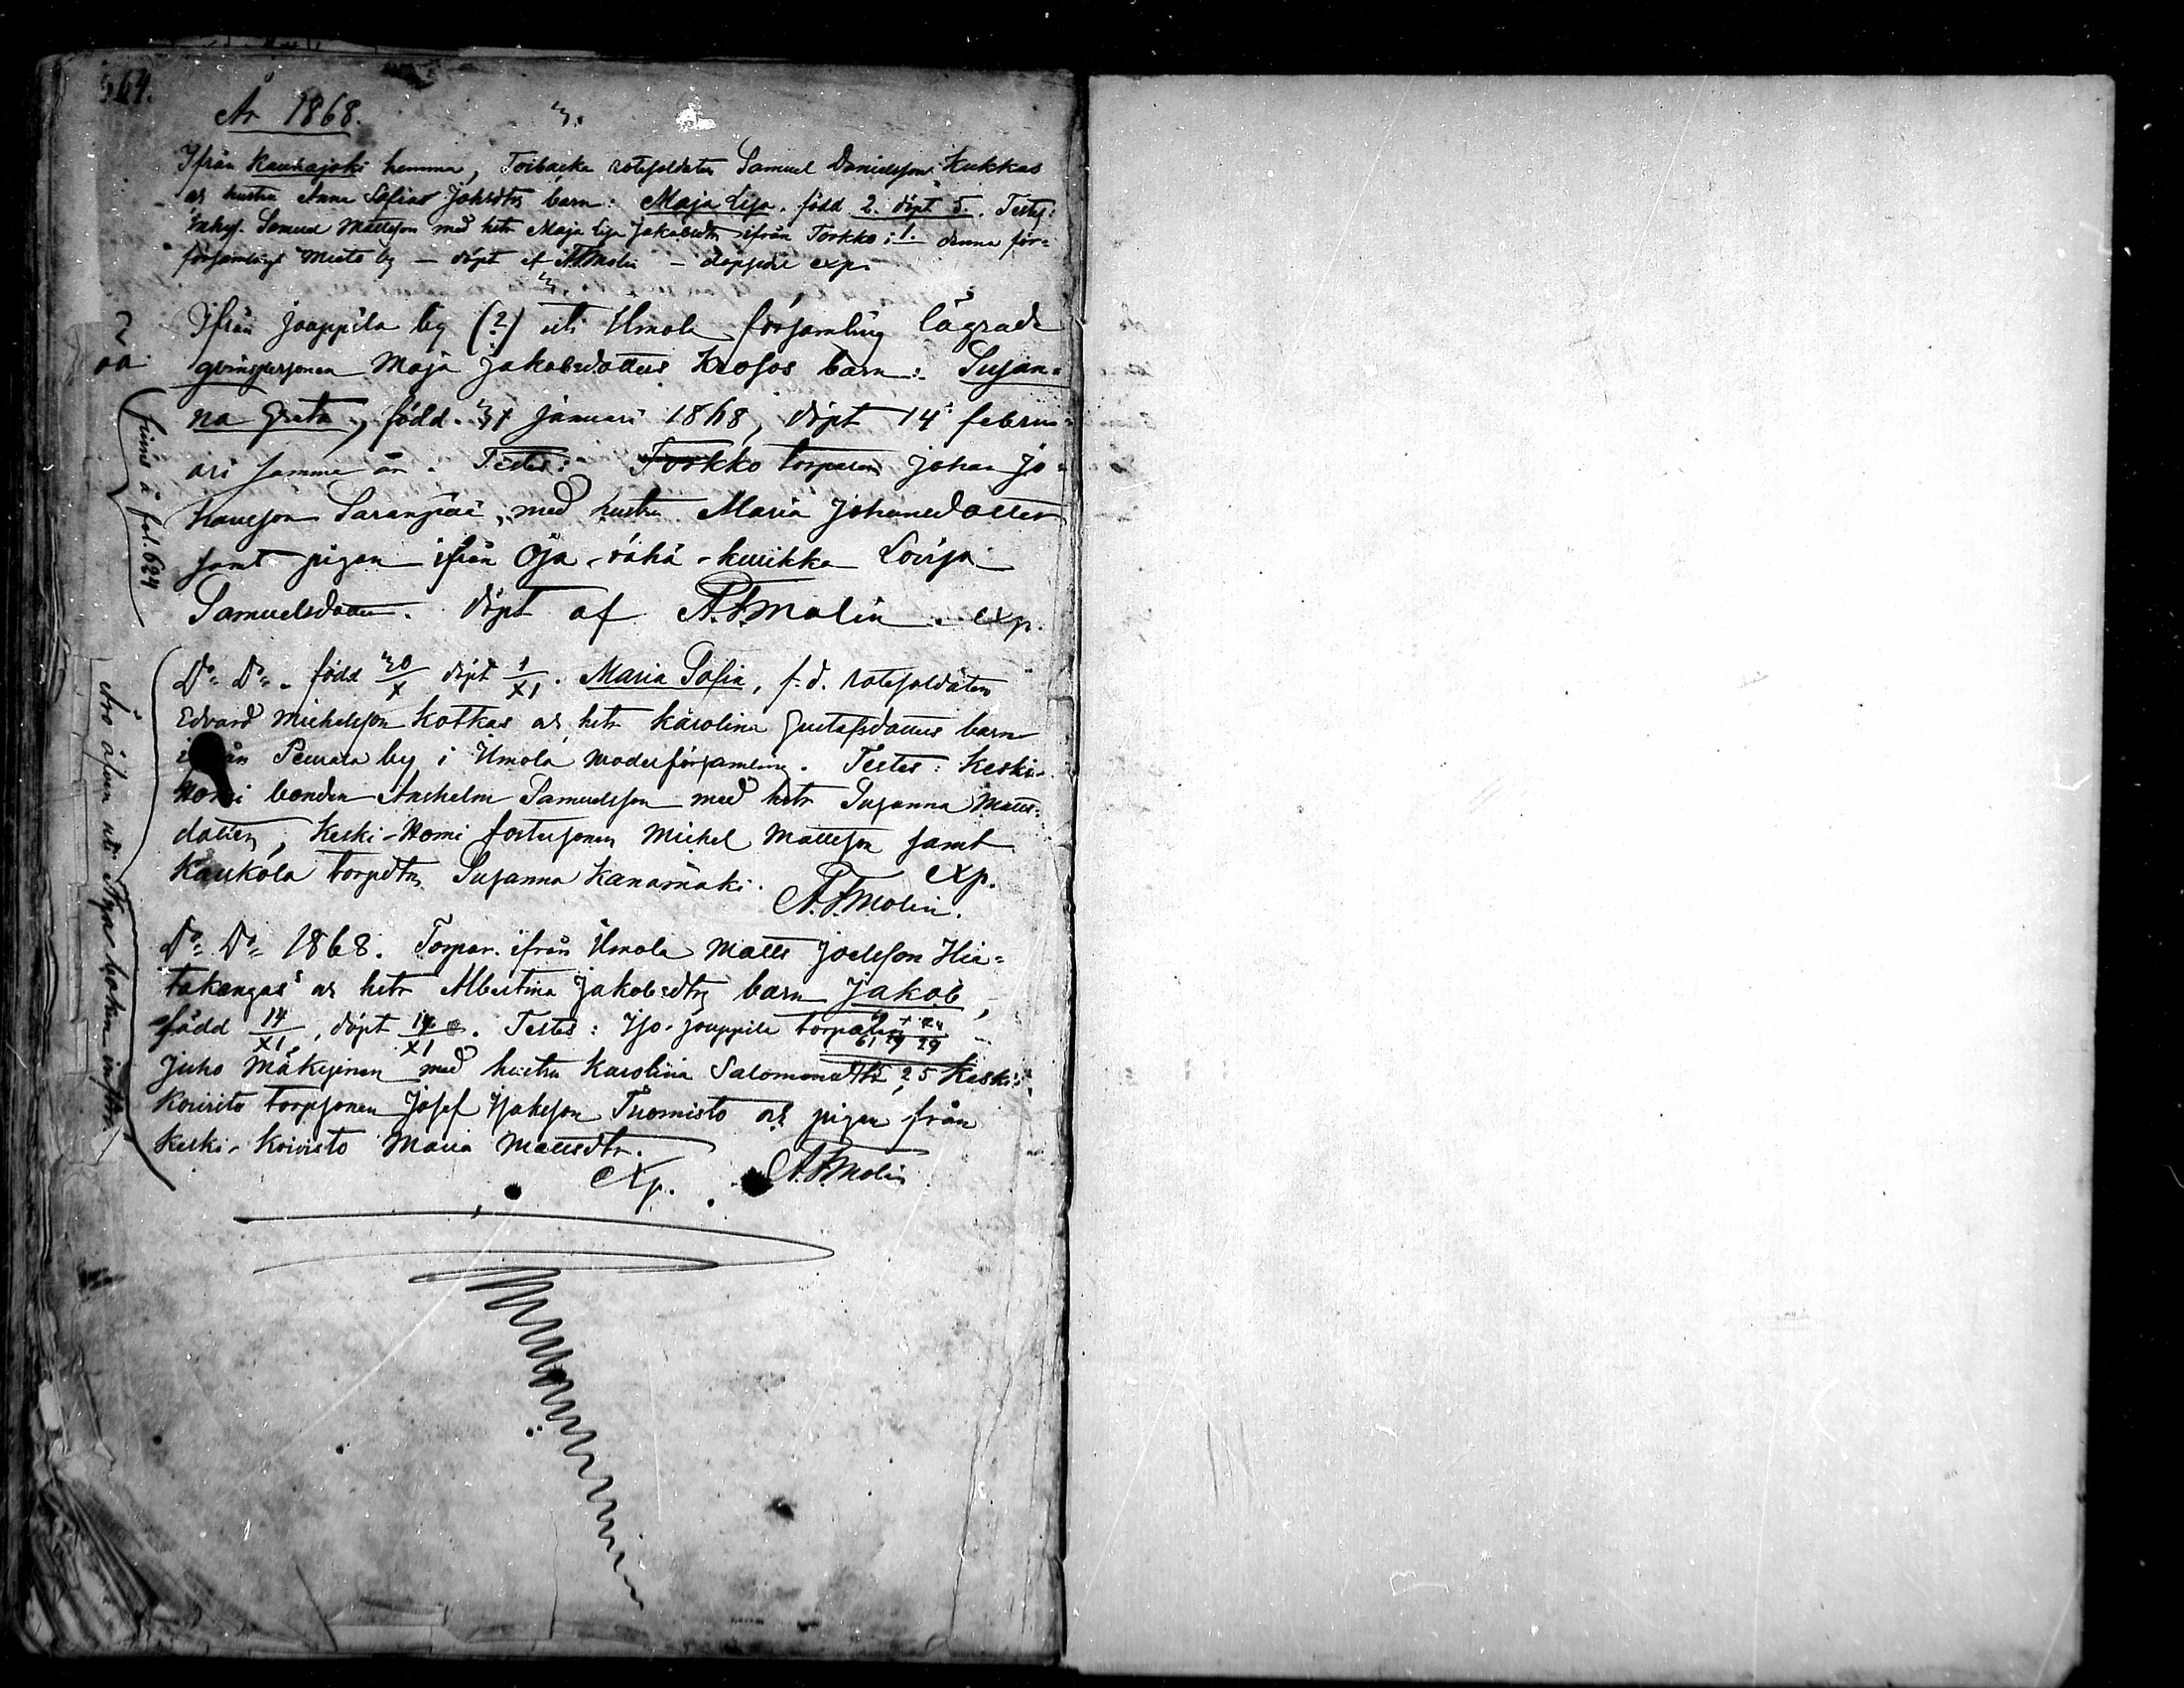 564.
År 1868.
3.
Ifrån Kauhajoki hemma, Toibacka rotesoldaten Samuel Danielsson Kukkas
och hustru Anna Sofias Johsdtrs barn: Maja Lisa. född 2. döpt 5. Testes:
Inhys. Samuel Mattsson med htr Maja Lisa Jakobsdtr ifrån Torkko i denna för=
församlings Mieto by — döpt af A.F. Molin — exp.
3.
Ifrån Jouppila by (?) uti Ilmola församling lägrade
qvinspersonen Maja Jakobsdotters Krosos barn: Susan=
na Greta, född 31 Januari 1868, döpt 14 febru=
ari samma år. Testes: Torkko torparen Johan Jo=
hansson Saranpää, med hustru Maria Johansdotter
samt pigan ifrån Oja-vähä-kurikka Lovisa
Samuelsdotter. döpt af A.F. Molin. exp.
(finns å fol. 624
Do: Do:. född 30/X döpt 1/XI. Maria Sofia, f.d. rotesoldaten
Edvard Michelsson Kotkas och htr Karolina Gustafsdotters barn
ifrån Peurala by i Ilmola moderförsamling. Testes: Keski-
Nomi bonden Anshelm Samuelsson med htr Susanna Matts=
dotter, Keski-Nomi fostersonen Michel Mattsson samt
Kaukola torpdtr Susanna Kanamäki. exp.
A.F. Molin.
Do: Do: 1868. Torpar. ifrån Ilmola Matts Joelsson Hie=
takangas och htr Albertina Jakobsdtrs barn Jakob,
född 14/XI, döpt 14/XI. Testes: Iso-Jouppila torparen
Juho Mäkynen med hustru Karolina Salomonsdtr, 25 Keski-
Koivisto torpsonen Josef Isaksson Tuomisto och pigan från
Keski-Koivisto Maria Mattsdtr.
exp. A.F. Molin
Äro äfven uti Nya boken införda